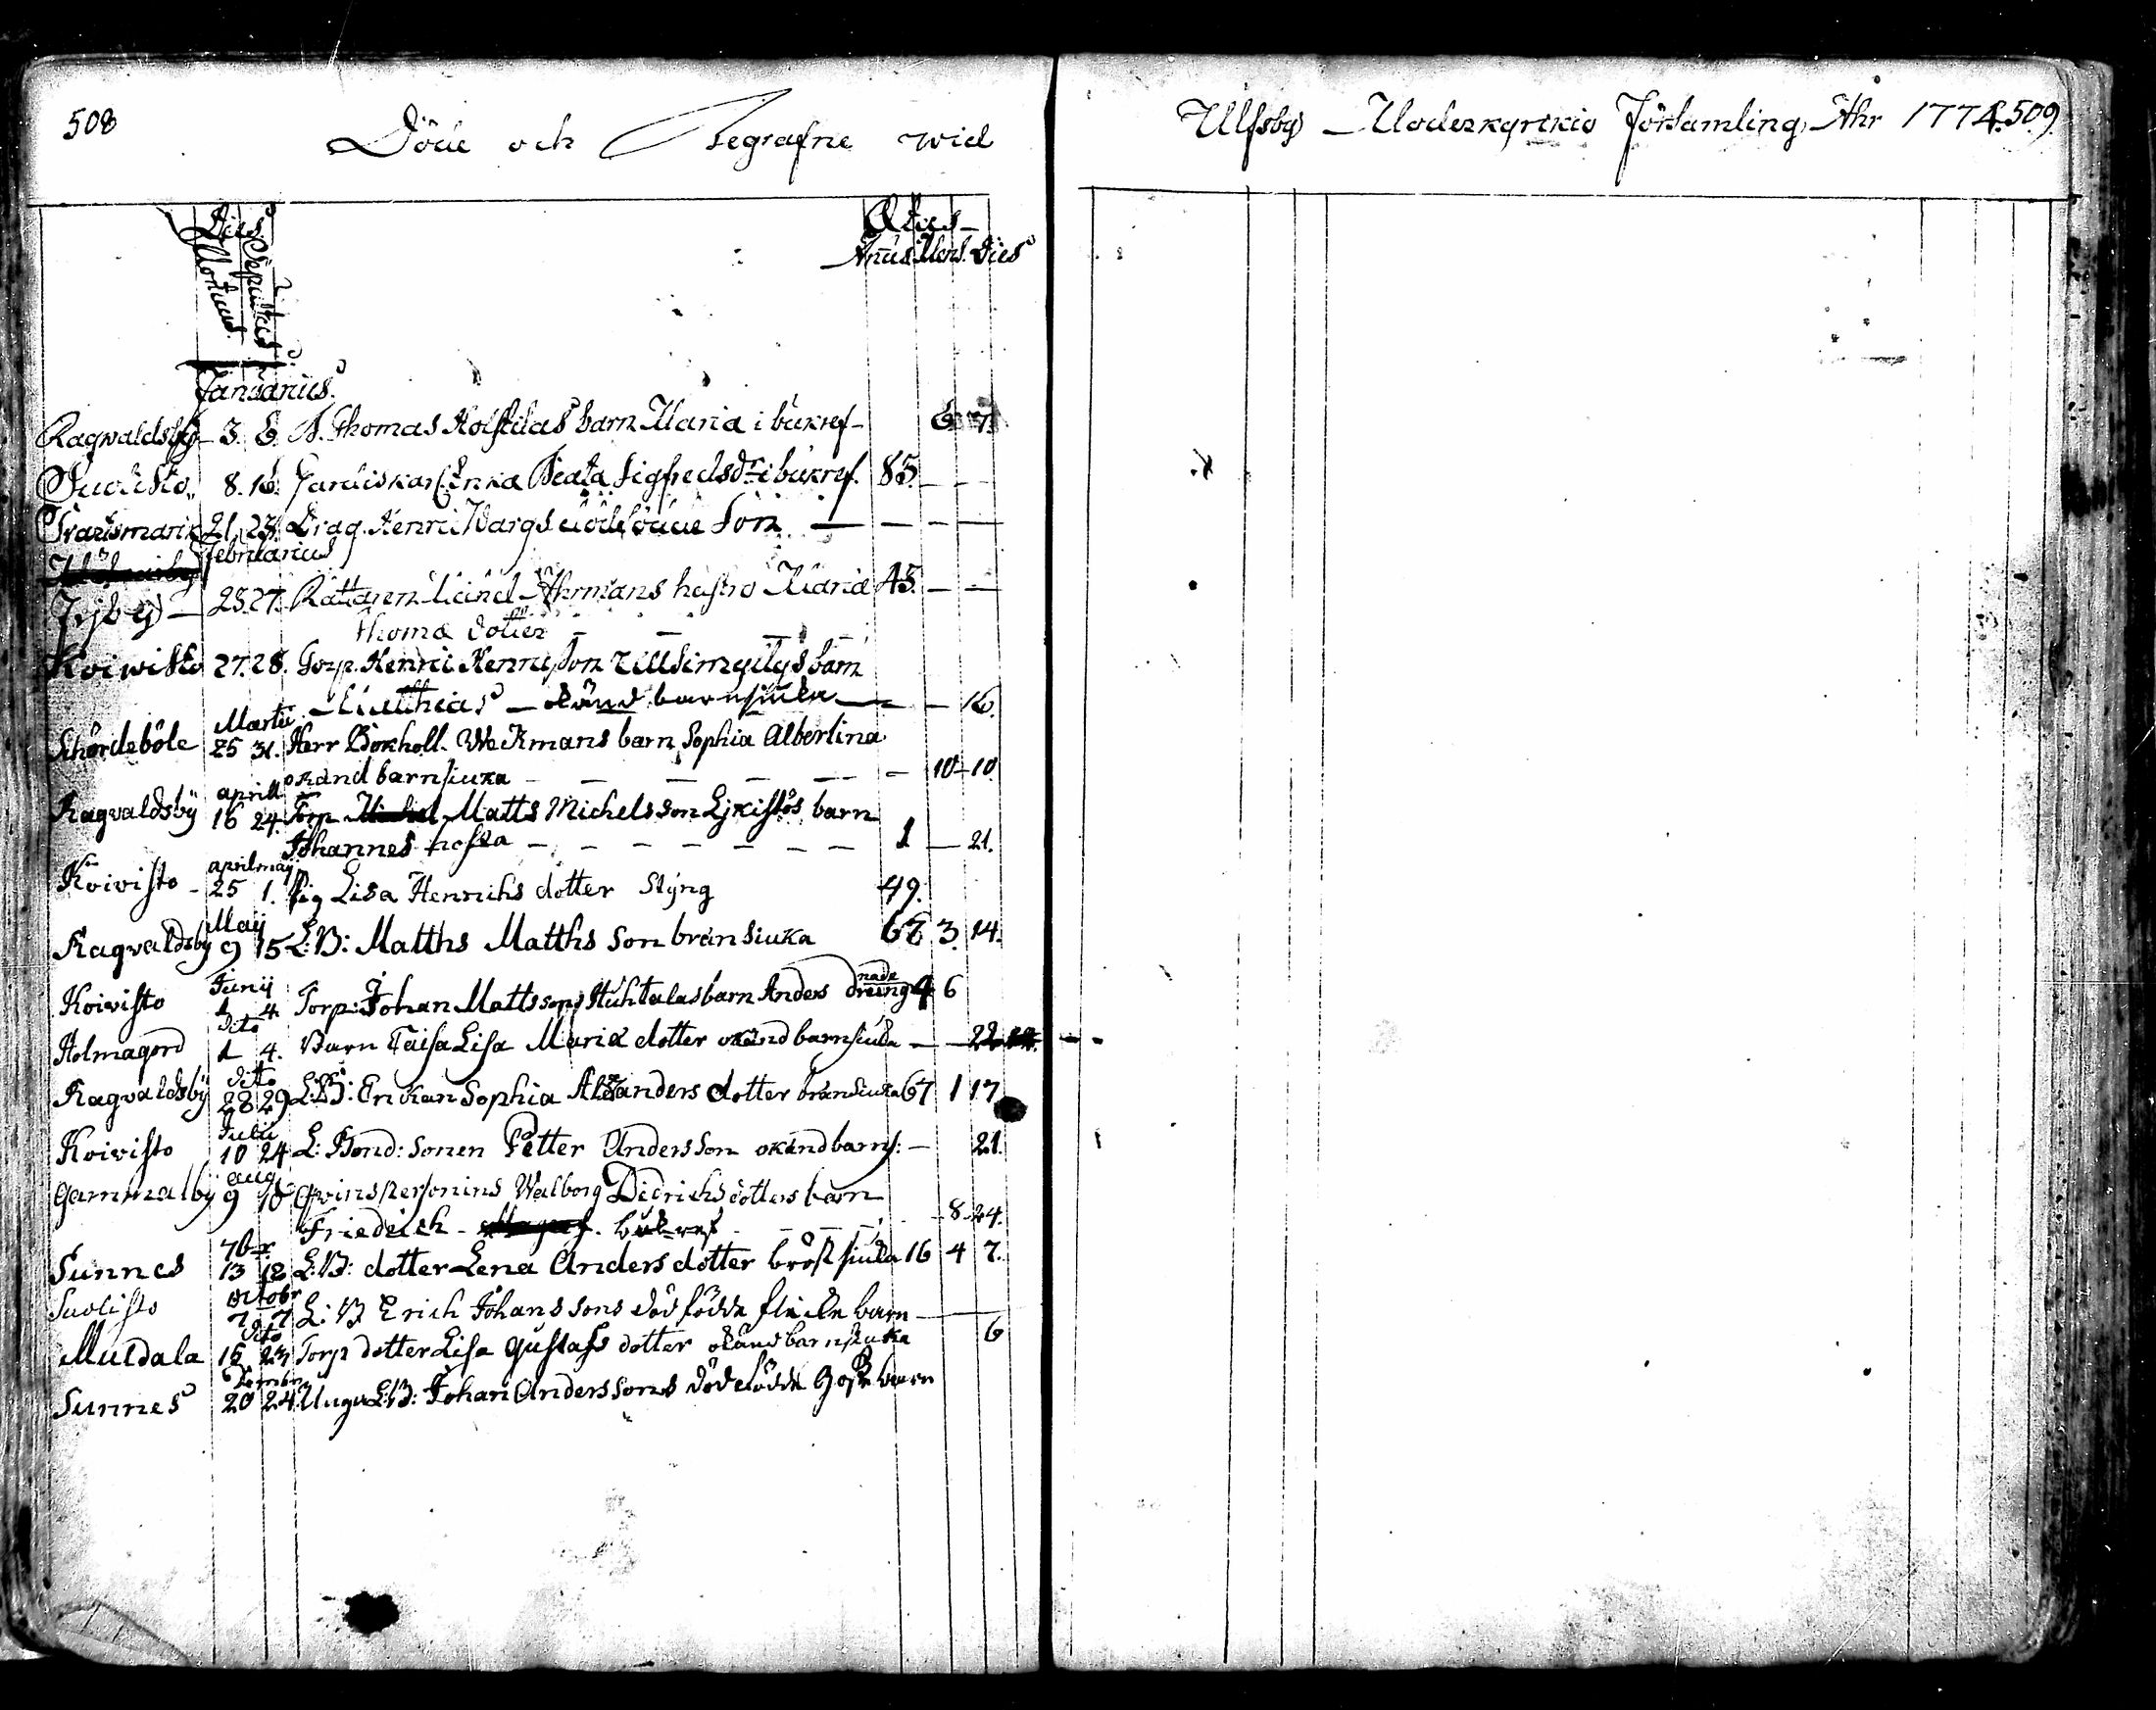 508
Döde och Begrafne wid
Ulfsby Moderkyrckio Församling Åhr 1774. 509.
Dies. Ætas
Mortuus Sepultus Annus Mens. Dies
Januarius.
Ragwaldsby 3. 6. B. Thomas barn Maria i bukref 6. 7.
Suolisto 8. 16. Enka Beata Sigfredsdr i bukref. 85. — —
Svartsmark 21. 23. Drag. Henric Wargs dödfödde Son — — — —
Februarius
Irjby — 25. 27. Rättaren Michel Åhrmans hustro Maria 45. — —
Thomæ dotter — — — —
Koiwisto 27. 28. Torp. Henric Henricson barn
Matthias — okänd barnsiuka — — 16.
Martii
25 31. Herr Bokholl. Weckmans barn Sophia Albertina
okänd barnsiuka — — — — — 10 — 10.
aprill
Ragvaldsby 16 24. Torp. Matts Michelsson barn
Johannes hosta — — — — — — — 1 — 21.
april may
Koivisto — 25 1. Pig Lisa Henrichs dotter Styng 49.
Maij
Ragvaldsby 9 15 L:B: Matths Matths Son bränsiuka 67 3. 14.
Junij
Koivisto 1 4. Torp: Johan Mattssons Stuhtalas barn Anders 4 6
nade
Dito
Holmagord 1 4. Barn Caisa Lisa Mariæ dotter okänd barnsiuka — — 22
ditto
Ragvaldsby 28 29 L:B: Enkan Sophia Alexanders dotter bränsiuka 67 1 17
Julii
Koivisto 10 24 L: Bond: Sonen Petter Andersson okänd barns: — 21.
aug.
Gammalby 9 10 Qvinspersonins Walborg Didrichsdotters barn
Friedrich — bukref — — — 8 24.
7br
Sunnes 13 18 L:B: dotter Lena Anders dotter bröst siuka 16 4 7.
Octobr
Suolisto 7 7 L: B Erich Johanssons dödfödda flicke barn — —
dito
Muldala 15 23 Torp dotter Lisa Gustafs dotter okänd barnsiuka 6
Sunnes 20 24. Unga L:B: Johan Anderssons dödfödda Gosse barn